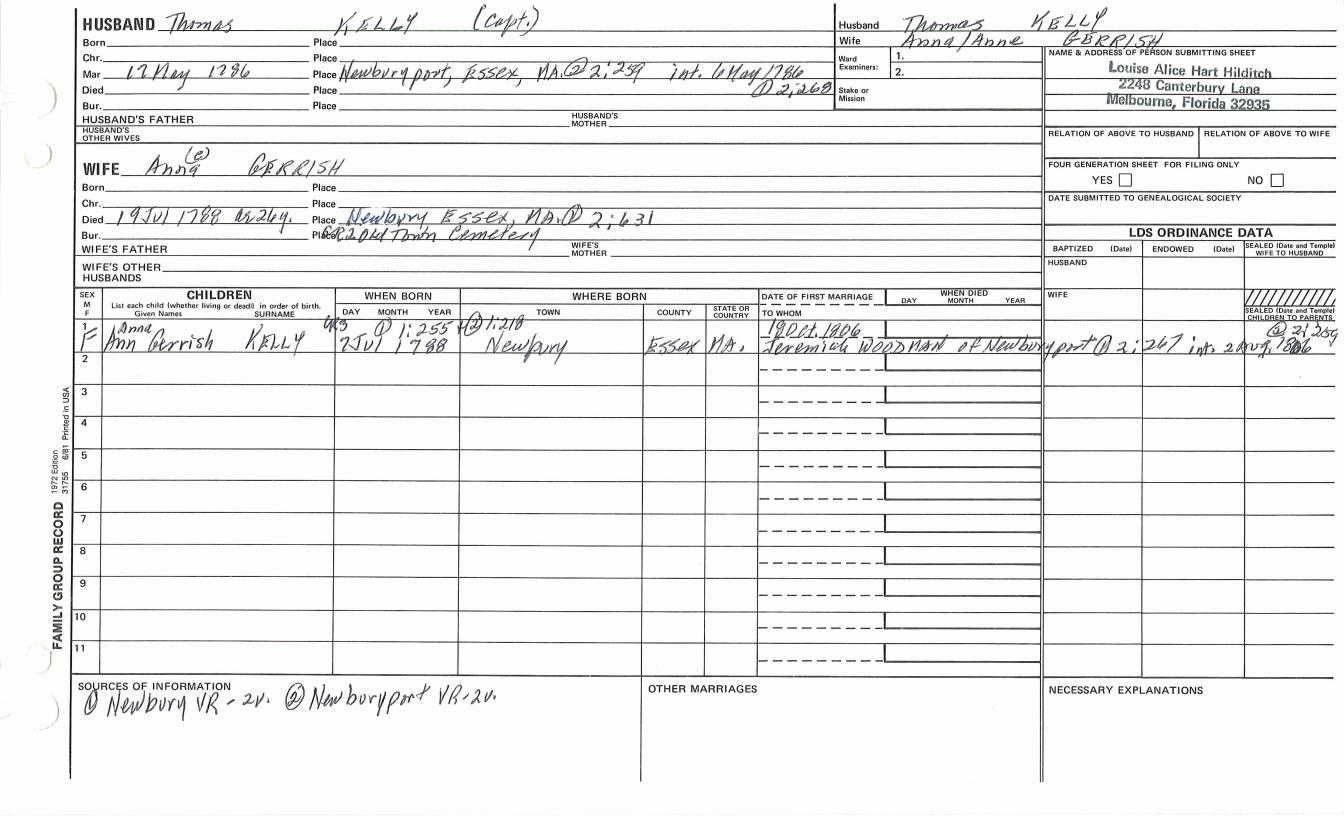 HUSBAND Thomas KELLY (Capt.)
Husband Thomas KELLY
Wife Anna/Anne GERRISH
Born Place
Chr. Place
Mar 17 May 1786 Place Newburyport, Essex, MA. ② 2:259 int. 6 May 1786
① 2:268
Died Place
Bur. Place
Ward Examiners: 1.
2.
Stake or Mission
NAME & ADDRESS OF PERSON SUBMITTING SHEET
Louise Alice Hart Hilditch
2248 Canterbury Lane
Melbourne, Florida 32935
HUSBAND'S FATHER HUSBAND'S MOTHER
HUSBAND'S OTHER WIVES
RELATION OF ABOVE TO HUSBAND RELATION OF ABOVE TO WIFE
(e)
WIFE Anna GERRISH
FOUR GENERATION SHEET FOR FILING ONLY
YES NO
Born Place
Chr. Place
Died 19 Jul 1788 ae 26y. Place Newbury Essex, MA. ① 2:631
Bur. Place GR2 Old Town Cemetery
DATE SUBMITTED TO GENEALOGICAL SOCIETY
WIFE'S FATHER WIFE'S MOTHER
WIFE'S OTHER HUSBANDS
LDS ORDINANCE DATA
BAPTIZED (Date) ENDOWED (Date) SEALED (Date and Temple) WIFE TO HUSBAND
HUSBAND
WIFE
SEALED (Date and Temple) CHILDREN TO PARENTS
SEX M F
CHILDREN
List each child (whether living or dead) in order of birth.
Given Names SURNAME
WHEN BORN
DAY MONTH YEAR
WHERE BORN
TOWN COUNTY STATE OR COUNTRY
DATE OF FIRST MARRIAGE
TO WHOM
WHEN DIED
DAY MONTH YEAR
1 Anna ① 1:255 + ② 1:218 19 Oct. 1806 ② 2:259
F Ann Gerrish KELLY 7 Jul 1788 Newbury Essex MA. Jeremiah WOODMAN of Newburyport ① 2:267 int. 2 Aug. 1806
2
3
4
5
6
7
8
9
10
11
FAMILY GROUP RECORD 1972 Edition 31756 6/81 Printed in USA
SOURCES OF INFORMATION
① Newbury VR - 2v. ② Newburyport VR-2v.
OTHER MARRIAGES
NECESSARY EXPLANATIONS